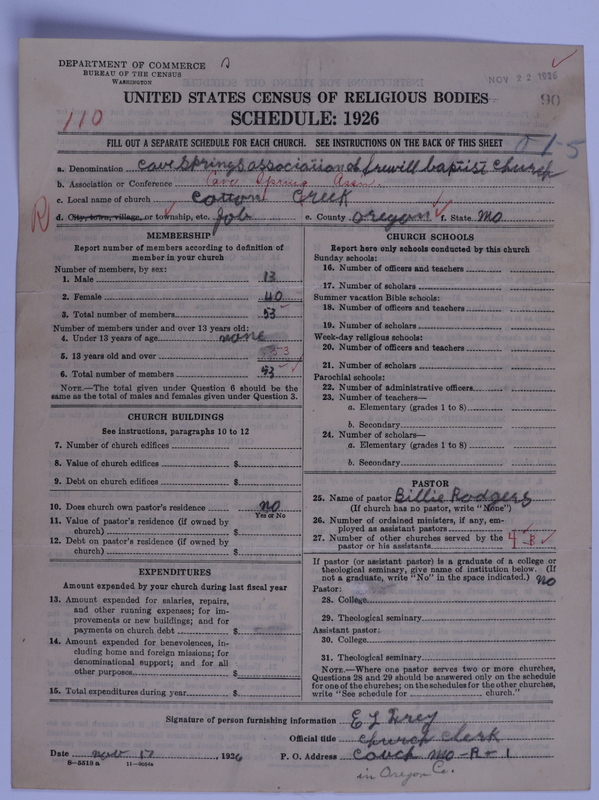 DEPARTMENT OF COMMERCE
BUREAU OF THE CENSUS
WASHINGTON
NOV 22 1926
90
UNITED STATES CENSUS OF RELIGIOUS BODIES
110
SCHEDULE: 1926
FILL OUT A SEPARATE SCHEDULE FOR EACH CHURCH. SEE INSTRUCTIONS ON THE BACK OF THIS SHEET
a. Denomination Cave Springs association of frewill baptist Church
b. Association or Conference Cave Spring Assn.
c. Local name of church Cotton Creek
d. City, town, village, or township, etc. Job e. County Oregon f. State Mo
MEMBERSHIP
Report number of members according to definition of
member in your church
Number of members, by sex:
1. Male 13
2. Female 40
3. Total number of members 53
Number of members under and over 13 years old:
4. Under 13 years of age none
5. 13 years old and over 53
6. Total number of members 53
NOTE.—The total given under Question 6 should be the
same as the total of males and females given under Question 3.
CHURCH BUILDINGS
See instructions, paragraphs 10 to 12
7. Number of church edifices
8. Value of church edifices $
9. Debt on church edifices $
10. Does church own pastor's residence no
Yes or No
11. Value of pastor's residence (if owned by
church) $
12. Debt on pastor's residence (if owned by
church) $
EXPENDITURES
Amount expended by your church during last fiscal year
13. Amount expended for salaries, repairs,
and other running expenses; for im-
provements or new buildings; and for
payments on church debt $
14. Amount expended for benevolences, in-
cluding home and foreign missions; for
denominational support; and for all
other purposes $
15. Total expenditures during year $
CHURCH SCHOOLS
Report here only schools conducted by this church
Sunday schools:
16. Number of officers and teachers
17. Number of scholars
Summer vacation Bible schools:
18. Number of officers and teachers
19. Number of scholars
Week-day religious schools:
20. Number of officers and teachers
21. Number of scholars
Parochial schools:
22. Number of administrative officers
23. Number of teachers—
a. Elementary (grades 1 to 8)
b. Secondary
24. Number of scholars—
a. Elementary (grades 1 to 8)
b. Secondary
PASTOR
25. Name of pastor Billie Rodgers
(If church has no pastor, write "None")
26. Number of ordained ministers, if any, em-
ployed as assistant pastors
27. Number of other churches served by the
pastor or his assistants
If pastor (or assistant pastor) is a graduate of a college or
theological seminary, give name of institution below. (If
not a graduate, write "No" in the space indicated.) no
Pastor:
28. College
29. Theological seminary
Assistant pastor:
30. College
31. Theological seminary
NOTE.—Where one pastor serves two or more churches,
Questions 28 and 29 should be answered only on the schedule
for one of the churches; on the schedules for the other churches,
write "See schedule for church."
Signature of person furnishing information
Official title Church Clerk
Date nov 17 1926 P. O. Address Couch Mo-R-1
8—5518 a
in Oregon Co.